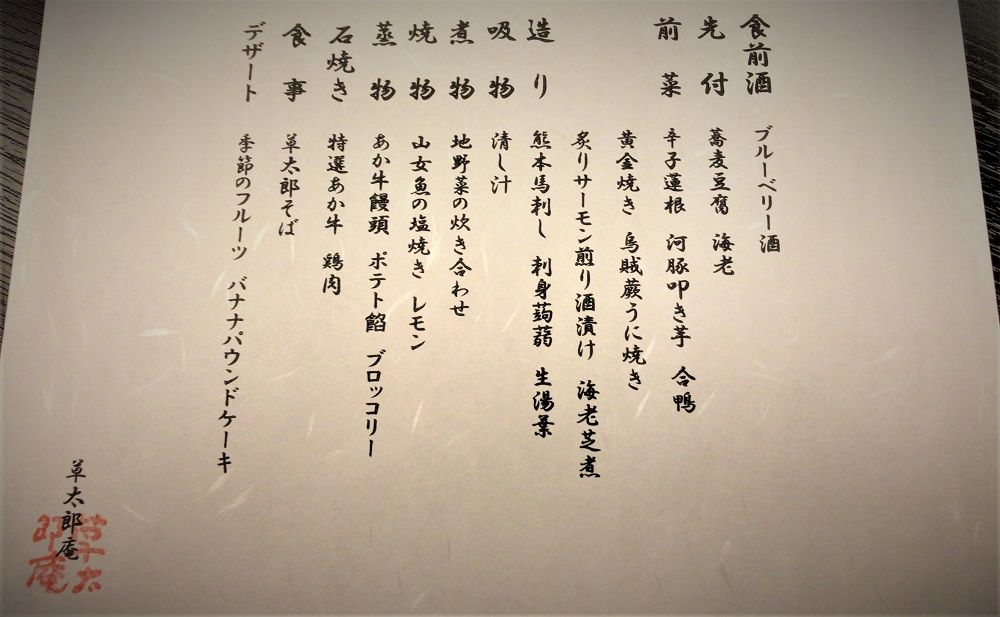 食前酒 ブルーベリー酒
先付 蕎麦豆腐 海老
前菜 辛子蓮根 河豚叩き芋 合鴨
黄金焼き 烏賊蕨うに焼き
炙りサーモン煎り酒漬け 海老芝煮
造り 熊本馬刺し 刺身蒟蒻 生湯葉
吸物 清し汁
煮物 地野菜の炊き合わせ
焼物 山女魚の塩焼き レモン
蒸物 あか牛饅頭 ポテト餡 ブロッコリー
石焼き 特選あか牛 鶏肉
食事 草太郎そば
デザート 季節のフルーツ バナナパウンドケーキ
草太郎庵
草太郎庵